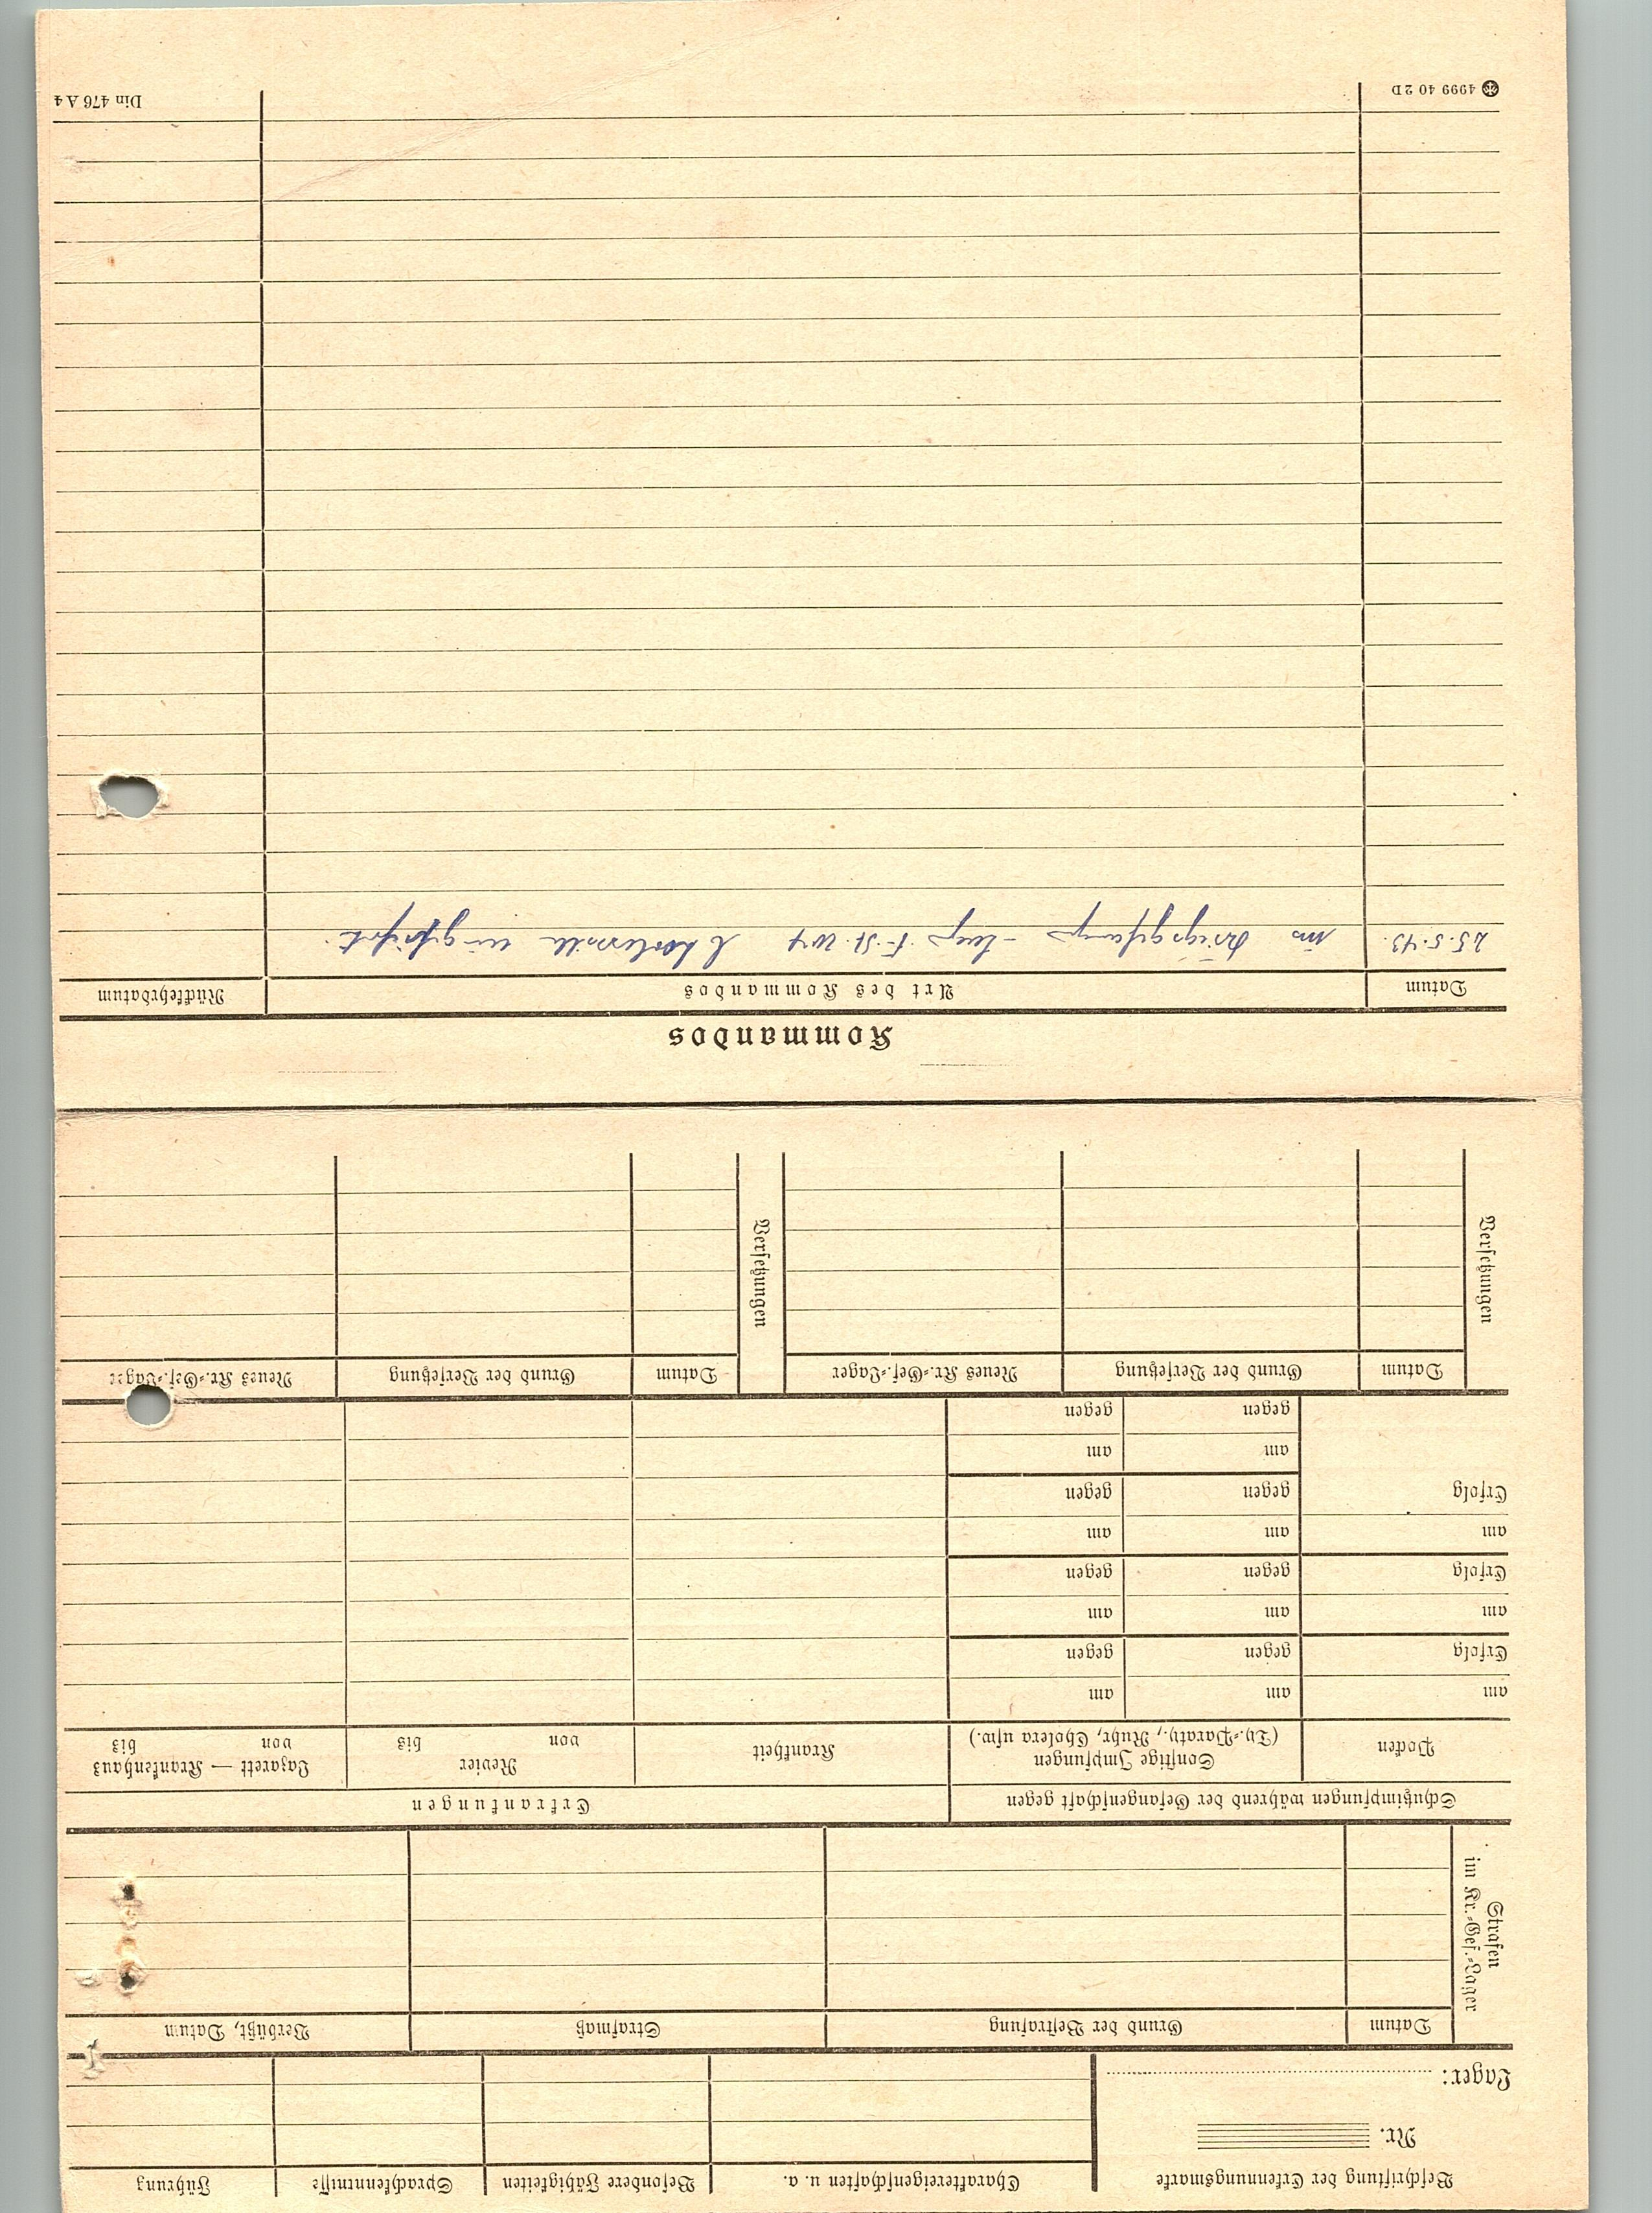 Beschriftung der Erkennungsmarke
Nr.
Lager:
Charaktereigenschaften u. a.
Besondere Fähigkeiten
Sprachkenntnisse
Führung
Strafen
im Kr.=Gef.=Lager
Datum
Grund der Bestrafung
Strafmaß
Verbüßt, Datum
Schutzimpfungen während der Gefangenschaft gegen
Erkrankungen
Pocken
Sonstige Impfungen
(Ty.=Paraty., Ruhr, Cholera usw.)
Krankheit
Revier
von bis
Lazarett — Krankenhaus
von bis
am am am
Erfolg gegen gegen
am am am
Erfolg gegen gegen
am am am
Erfolg gegen gegen
am am
gegen gegen
Versetzungen
Datum
Grund der Versetzung
Neues Kr.=Gef.=Lager
Versetzungen
Datum
Grund der Versetzung
Neues Kr.=Gef.=Lager
Kommandos
Datum
Art des Kommandos
Rückkehrdatum
25.5.43. ins Kriegsgefang.
4999 40 2 D
Din 476 A 4